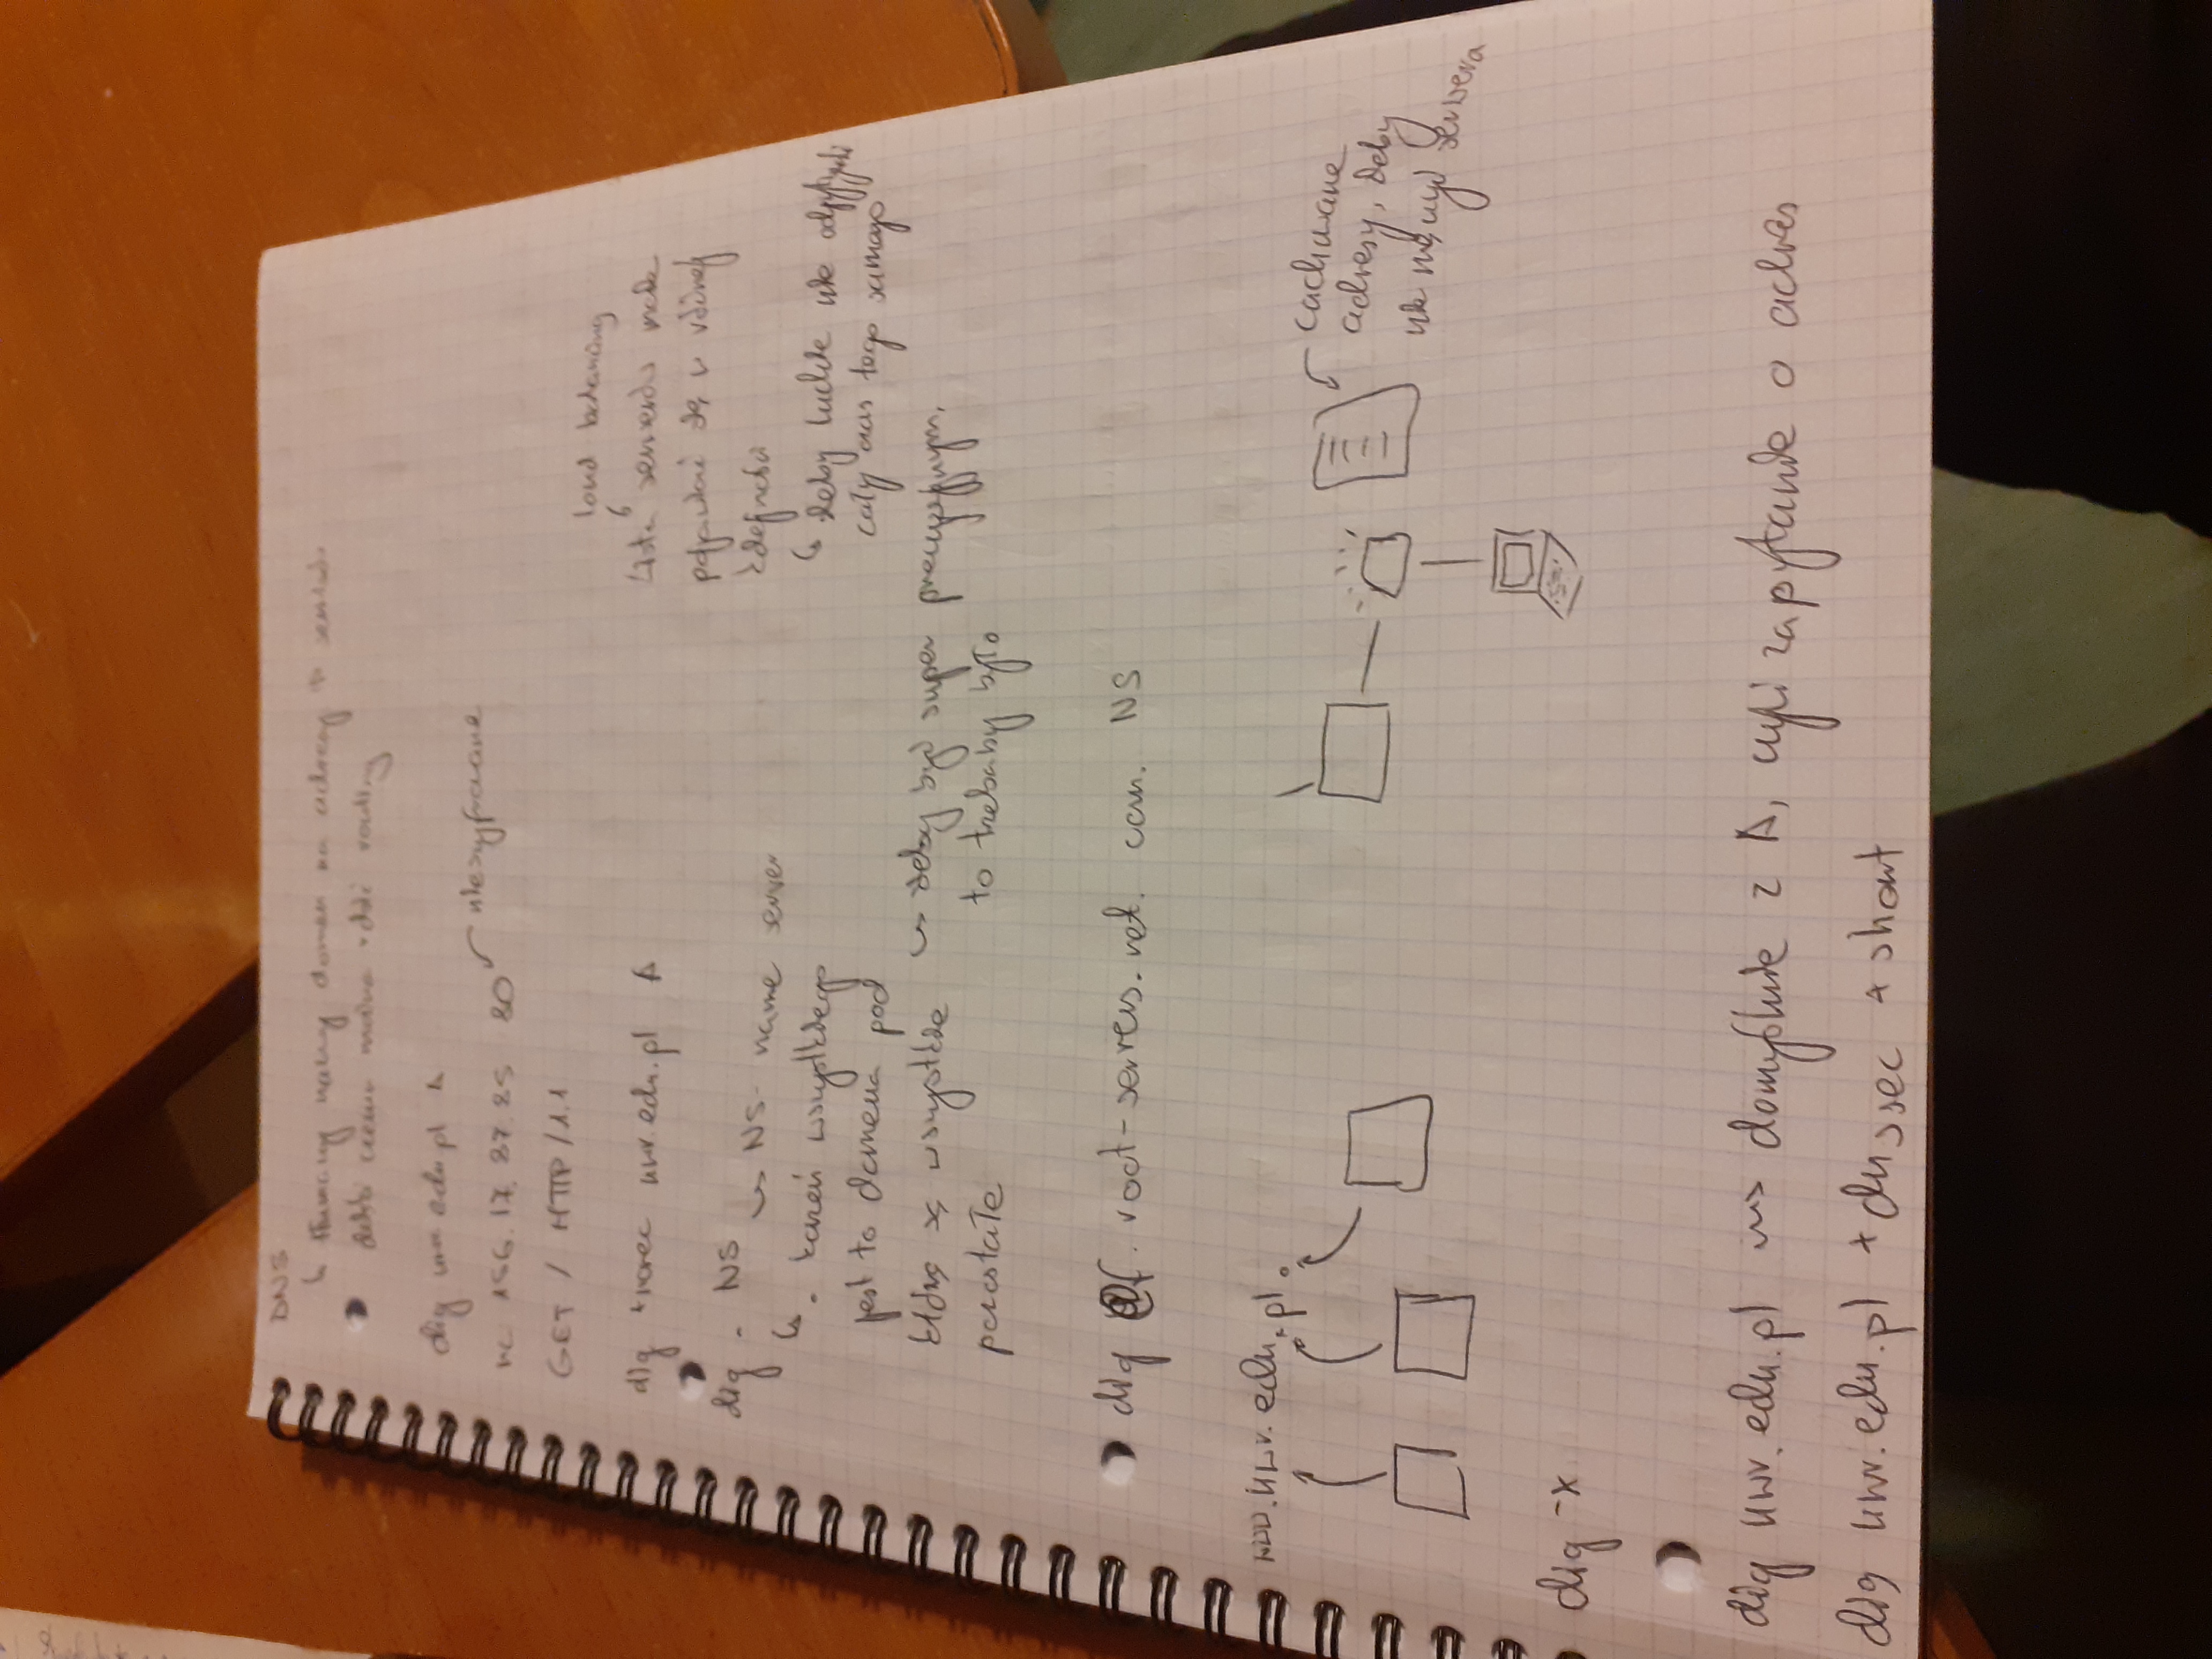 DNS
↳ tłumaczy nazwy domen na adresy IP serwerów
dzięki czemu można robić routing
dig uwr.edu.pl A
nc 156.17.87.85 80 ↙ nieszyfrowane
GET / HTTP/1.1
dig +norec uwr.edu.pl A
dig . NS
↳ NS - name server
↳ . korzeń wszystkiego
jest to domena pod
którą są wszystkie
pozostałe
load balancing
Lista serwerów może
pojawiać się w różnej
kolejności
↳ żeby ludzie nie odpytywali
cały czas tego samego
↳ żeby być super precyzyjnym,
to trzebaby było
dig @f.root-servers.net. com. NS
www.uwr.edu.pl.
cachowane
adresy, żeby
nie męczyć serwera
dig -x
dig uwr.edu.pl ~> domyślnie z A, czyli zapytanie o adres
dig uwr.edu.pl +dnssec +short